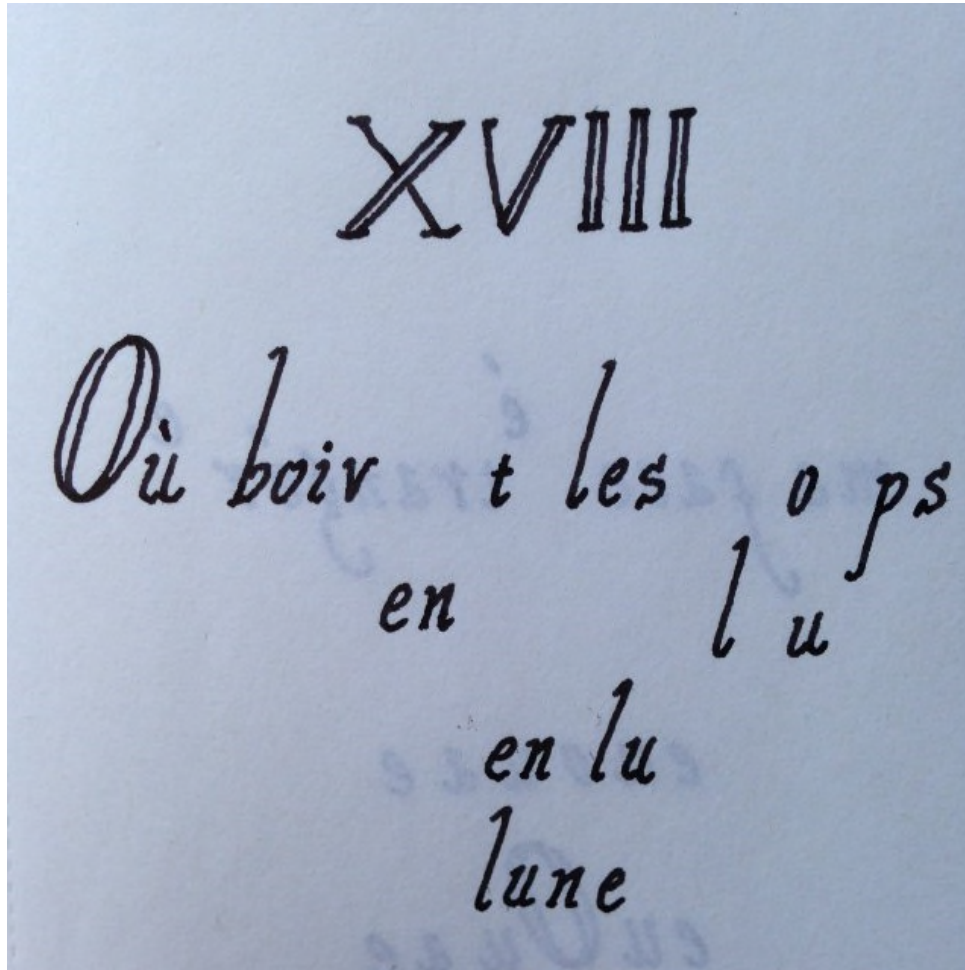 XVIII
Où boiv t les o ps
en l u
en lu
lune